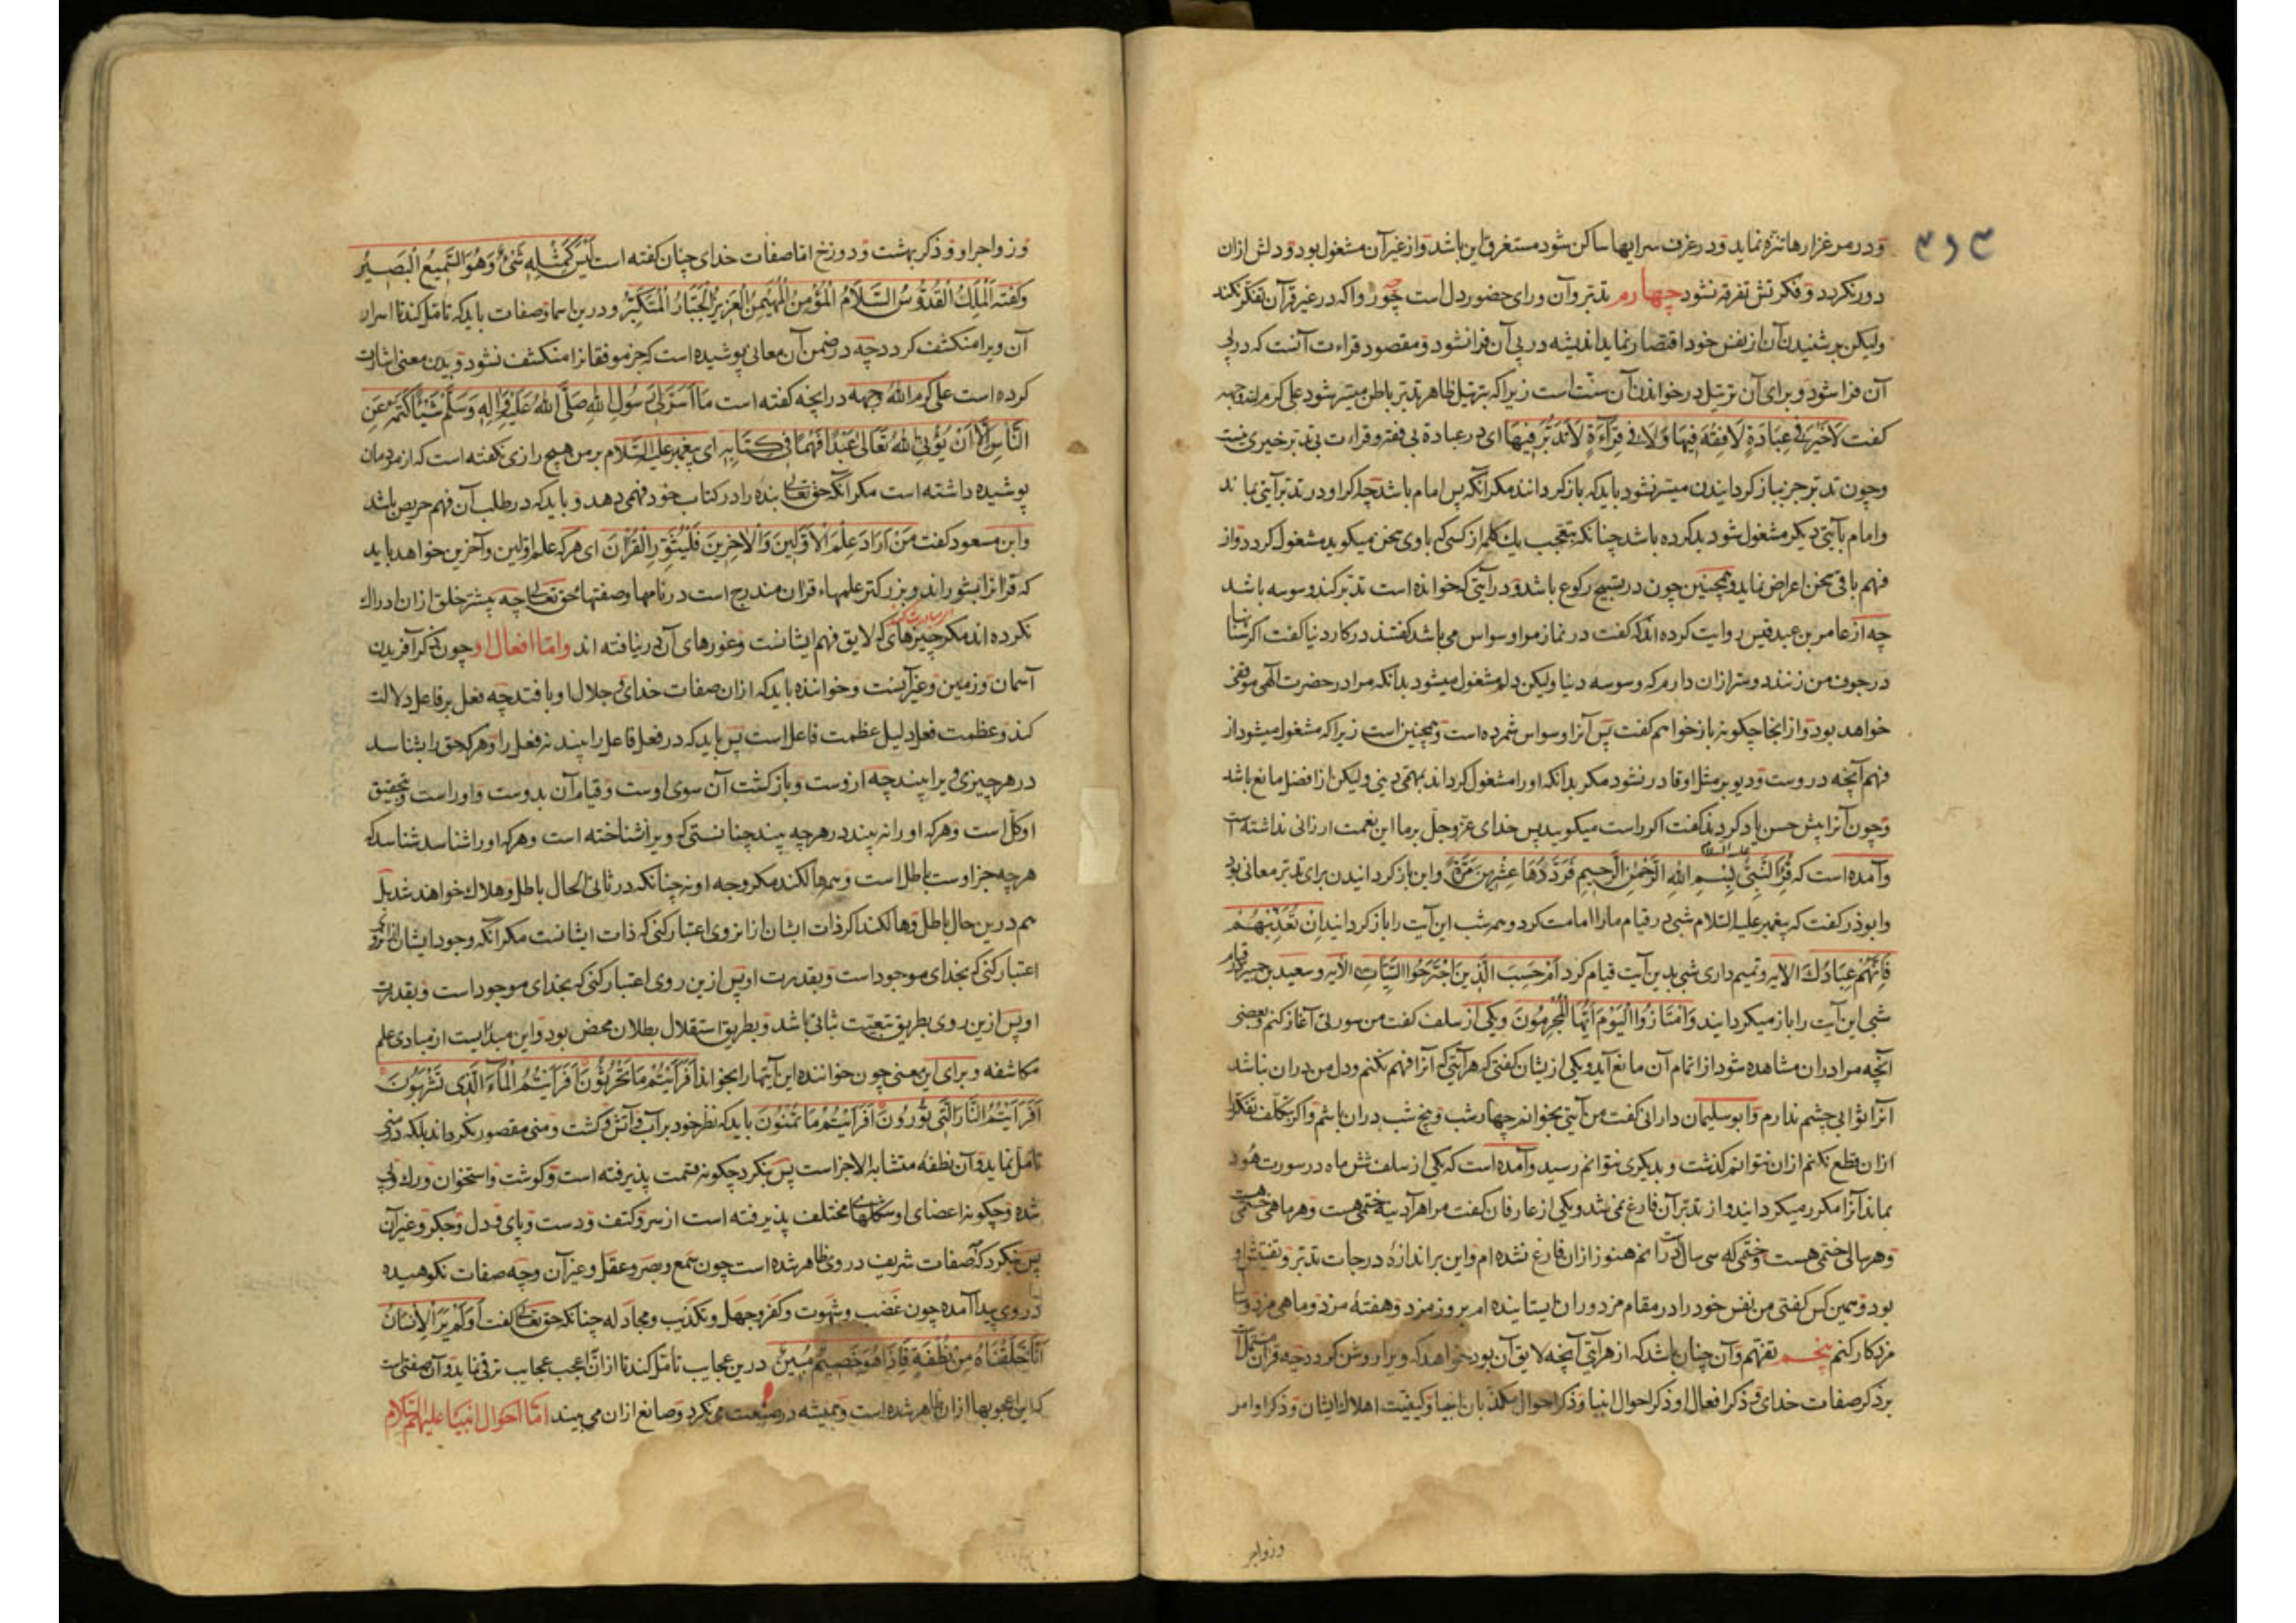 و در مرغزارها تنزه نماید و در غرف سرایها ساکن شود مستغرق این باشد و از غیر آن مشغول بود و دلش ازان
دور نکردد و فکرتش تفرقه نشود چهارم تدبر و آن ورای حضور دل است چه روا که در غیر قرآن تفکر نکند
ولیکن بر شنیدن آن از نفس خود اقتصار نماید اندیشه در پی آن فرا نشود و مقصود قراءت آنست که در پی
آن فرا شود و برای آن ترتیل در خواندن آن سنت است زیرا که بترتیل ظاهر تدبر باطن میسر شود علی کرم الله وجهه
کفت لا خیر فی عبادة لا فقه فیها ولا فی قراءة لا تدبر فیها ای در عبادة بی فقه و قراءت بی تدبر خیری نیست
و چون تدبر جز بباز کردانیدن میسر نشود باید که باز کرداند مکر آنکه پس امام باشد چه اکر او در تدبر آیتی بماند
و امام بآیتی دیکر مشغول شود بد کرده باشد چنانکه بتعجب یک کلمه از کسی که با وی سخن میکوید مشغول کردد و از
فهم باقی سخن اعراض نماید و همچنین چون در تسبیح رکوع باشد و در آیتی که خوانده است تدبر کند وسوسه باشد
چه از عامر بن عبد قیس روایت کرده اند که کفت در نماز مرا وسواس می باشد کفتند در کار دنیا کفت اکر سنانها
در جوف من زنند دوستر ازان دارم که وسوسه دنیا ولیکن دلم مشغول میشود بدانکه مرا در حضرت الهی موقفی
خواهد بود و از انجا چکونه باز خواهم کفت پس آنرا وسواس شمرده است و همچنین است زیرا که مشغول میشود از
فهم آنچه در وست و دیو بر مثل او قادر نشود مکر بدانکه او را مشغول کرداند بمهمی دینی ولیکن از افضل مانع باشد
و چون آنرا پیش حسن یاد کردند کفت اکر راست میکویید پس خدای عز وجل بر ما این نعمت ارزانی نداشته است
و آمده است که قرأ النبی علیه السلام بسم الله الرحمن الرحیم فرددها عشرین مرة و این باز کردانیدن برای تدبر معانی بود
و ابوذر کفت که پیغمبر علیه السلام شبی در قیام ما را امامت کرد و همه شب این آیت را باز کردانید ان تعذبهم
فانهم عبادک الایه و تمیم داری شبی بدین آیت قیام کرد ام حسب الذین اجترحوا السیئات الایه و سعید بن جبیر قیام
شبی این آیت را باز میکردانید وامتازوا الیوم ایها المجرمون و یکی از سلف کفت من سورتی آغاز کنم و بعضی
آنچه مرا دران مشاهده شود از اتمام آن مانع آید و یکی ازیشان کفتی که هر آیتی که آنرا فهم نکنم و دل من دران نباشد
آنرا ثوابی چشم ندارم و ابو سلیمان دارانی کفت من آیتی بخوانم چهار شب و پنج شب دران باشم و اکر بتکلف تفکر
ازان قطع نکنم ازان نتوانم کذشت و بدیکری نتوانم رسید و آمده است که یکی از سلف شش ماه در سورت هود
بماند آنرا مکرر میکردانید و از تدبر آن فارغ نمی شد و یکی از عارفان کفت مرا هر آدینه ختمی هست و هر ماهی ختمی هست
و هر سالی ختمی هست و ختمی که سی سال است در انم هنوز ازان فارغ نشده ام و این بر اندازهٔ درجات تدبر و تفتیش او
بود و همین کس کفتی من نفس خود را در مقام مزدوران ایستانیده ام بروز مزد و هفته مزد و ماهی مزد و سال
مزد کار کنم پنجم تفهم و آن چنان باشد که از هر آیتی آنچه لایق آن بود خواهد که ویرا روشن کردد چه قرآن مشتمل است
بر ذکر صفات خدای و ذکر افعال او و ذکر احوال انبیا و ذکر احوال مکذبان انبیا و کیفیت اهلاک ایشان و ذکر اوامر
وزواجر
و زواجر او و ذکر بهشت و دوزخ اما صفات خدای چنان کفته است لیس کمثله شیء وهو السمیع البصیر
و کفته الملک القدوس السلام المؤمن المهیمن العزیز الجبار المتکبر و درین اسما و صفات باید که تامل کند تا اسرار
آن ویرا منکشف کردد چه در ضمن آن معانی پوشیده است که جز موفقانرا منکشف نشود و بدین معنی اشارت
کرده است علی کرم الله وجهه در آنچه کفته است ما اسر الی رسول الله صلی الله علیه وآله وسلم شیئا کتمه عن
الناس الا ان یؤتی الله تعالی عبدا فهما فی کتابه ای پیغمبر علیه السلام بر من هیچ رازی نکفته است که از مردمان
پوشیده داشته است مکر آنکه حق تعالی بنده را در کتاب خود فهمی دهد و باید که در طلب آن فهم حریص باشد
و ابن مسعود کفت من اراد علم الاولین والاخرین فلیثور القرآن ای هر که علم اولین و آخرین خواهد باید
که قرآنرا بشوراند و بزرکتر علمهاء قرآن مندرج است در نامها و صفتهاء حق تعالی چه بیشتر خلق ازان ادراک
نکرده اند مکر چیزهای که لایق فهم ایشانست و غورهای آن در نیافته اند واما افعال او چون ذکر آفریدن
آسمان و زمین و غیر آنست و خواننده باید که ازان صفات خدای و جلال او یافتد چه فعل بر فاعل دلالت
کند و عظمت فعل دلیل عظمت فاعل است پس باید که در فعل فاعل را بیند نه فعل را و هر که حق را بشناسد
در هر چیزی ویرا بیند چه ازوست و باز کشت آن سوی اوست و قیام آن بدوست و اوراست و بتحقیق
او کل است و هر که او را نه بیند در هر چه بیند چنانستی که ویرا نشناخته است و هر که او را شناسد شناسد که
هر چه جز اوست باطل است و همه هالکند مکر وجه او نه چنانکه در ثانی الحال باطل و هلاک خواهند شد بل
هم درین حال باطل و هالکند اکر ذات ایشان از انروی اعتبار کنی که ذات ایشانست مکر آنکه وجود ایشان ازانروی
اعتبار کنی که بخدای موجود است و بقدرت او پس ازین روی اعتبار کنی که بخدای موجود است و بقدرت
او پس ازین روی بطریق تبعیت ثباتی باشد و بطریق استقلال بطلان محض بود و این مبدائیست از مبادی علم
مکاشفه و برای این معنی چون خواننده این آیتها را بخواند افرایتم ما تحرثون افرایتم الماء الذی تشربون
افرایتم النار التی تورون افرایتم ما تمنون باید که نظر خود بر آب و آتش و کشت و منی مقصور نکرداند بلکه در منی
تامل نماید و آن نطفه متشابه الاجزاست پس بنکرد چکونه قسمت پذیرفته است و کوشت و استخوان و رک و پی
شده و چکونه اعضای او شکلهای مختلف پذیرفته است از سر و کتف و دست و پای و دل و جکر و غیر آن
پس بنکرد که صفات شریف در وی ظاهر شده است چون سمع و بصر و عقل و غیر آن و چه صفات نکوهیده
در وی پیدا آمده چون غضب و شهوت و کفر و جهل و تکذیب و مجادله چنانکه حق تعالی کفت اولم یر الانسان
انا خلقناه من نطفة فاذا هو خصیم مبین درین عجایب تامل کند تا ازان اعجب عجایب ترقی نماید و آن صفتی است
که این اعجوبها ازان ظاهر شده است و همیشه در صنعت می نکرد و صانع ازان می بیند اما احوال انبیا علیهم السلام